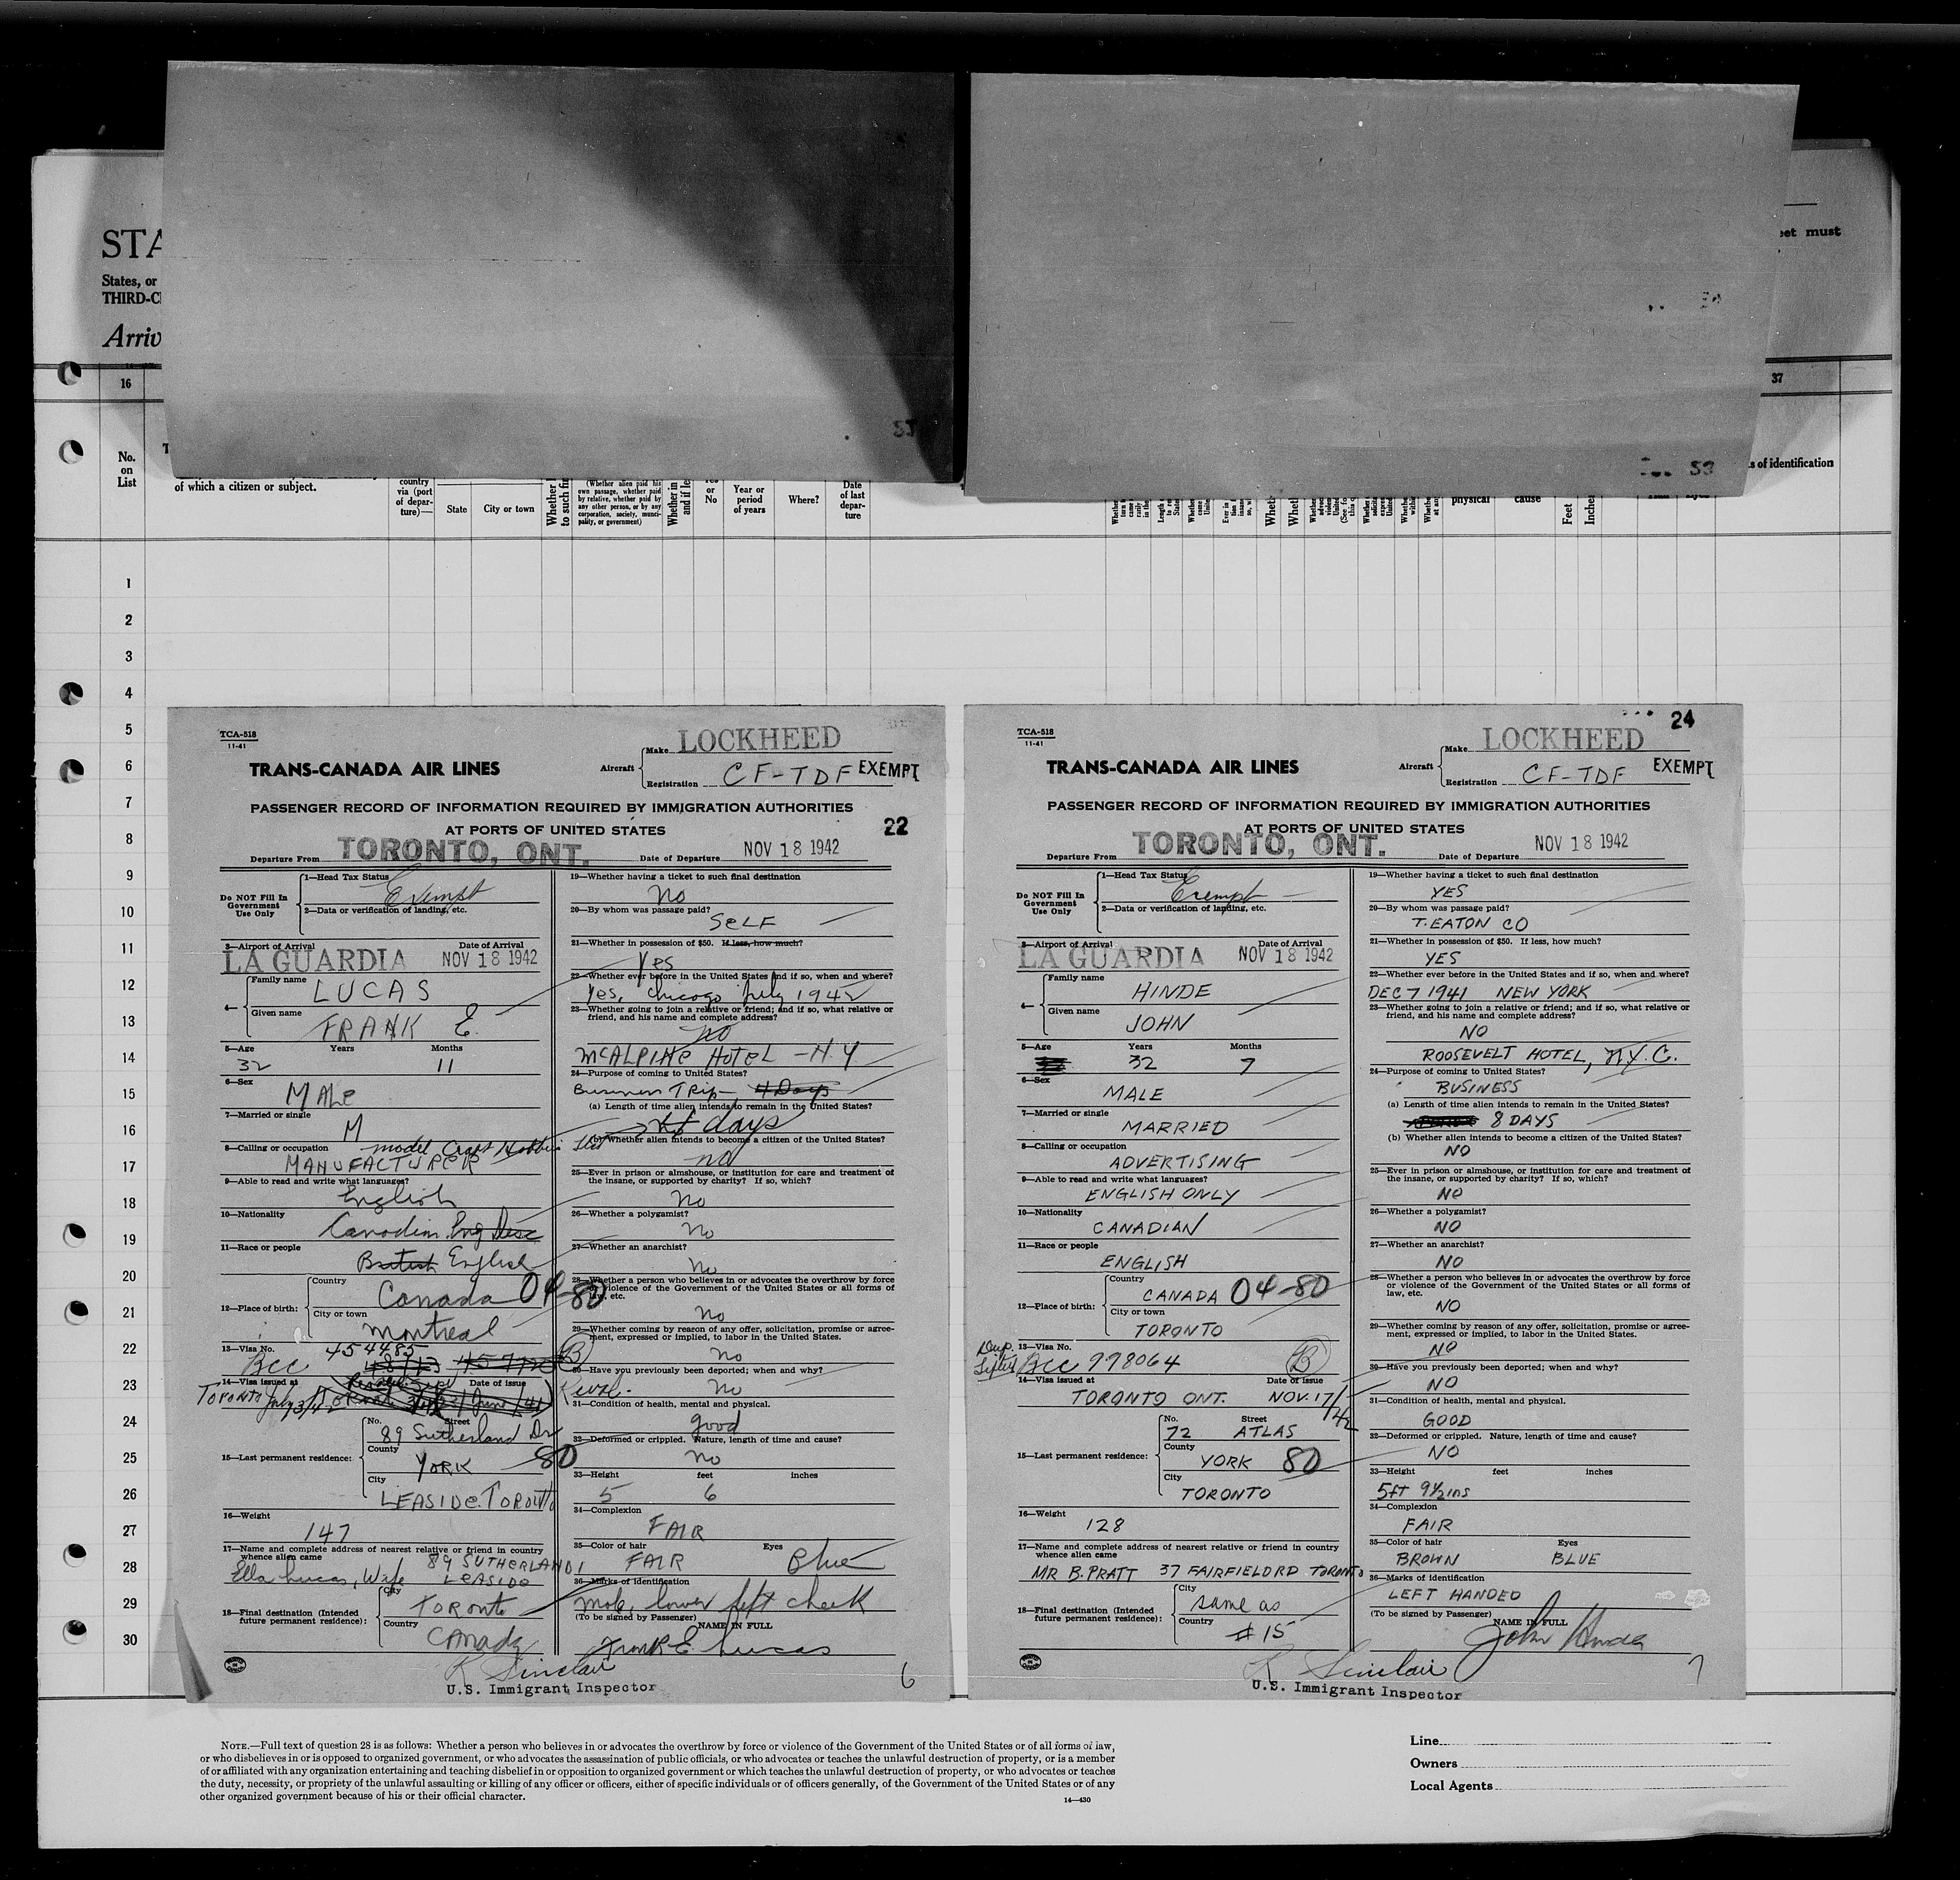 STA
States, or
THIRD-C
Arriv
et must
16
37
No.
on
List
of which a citizen or subject.
country
via (port
of depar-
ture)—
State
City or town
Whether
to such fi
(Whether alien paid his
own passage, whether paid
by relative, whether paid by
any other person, or by any
corporation, society, munici-
pality, or government)
Whether in
and if le
or
No
Year or
period
of years
Where?
Date
of last
depar-
ture
physical
cause
Feet
Inches
s of identification
1
2
3
4
5
6
7
8
9
10
11
12
13
14
15
16
17
18
19
20
21
22
23
24
25
26
27
28
29
30
TCA-518
11-41
TRANS-CANADA AIR LINES
Aircraft
Make LOCKHEED
Registration CF-TDF EXEMPT
PASSENGER RECORD OF INFORMATION REQUIRED BY IMMIGRATION AUTHORITIES
AT PORTS OF UNITED STATES
22
Departure From TORONTO, ONT. Date of Departure NOV 18 1942
Do NOT Fill In
Government
Use Only
1—Head Tax Status
Exempt
2—Data or verification of landing, etc.
3—Airport of Arrival Date of Arrival
LA GUARDIA NOV 18 1942
4—
Family name
LUCAS
Given name
FRANK E
5—Age Years Months
32 11
6—Sex
MALE
7—Married or single
M
8—Calling or occupation model Craft Hobbies
MANUFACTURER
9—Able to read and write what languages?
English
10—Nationality
Canadian Eng Desc
11—Race or people
British English
12—Place of birth:
Country
Canada 04-80
City or town
Montreal
13—Visa No. 454485
BCC
14—Visa issued at Date of issue
TORONTO July 31/42
15—Last permanent residence:
No. Street
89 Sutherland Dr
County
YORK 80
City
LEASIDE. TORONTO
16—Weight
147
17—Name and complete address of nearest relative or friend in country
whence alien came 89 SUTHERLAND
Ella Lucas, Wife LEASIDE
18—Final destination (Intended
future permanent residence):
City
TORONTO
Country
CANADA
19—Whether having a ticket to such final destination
No
20—By whom was passage paid?
SELF
21—Whether in possession of $50. If less, how much?
Yes
22—Whether ever before in the United States and if so, when and where?
Yes, Chicago July 1942
23—Whether going to join a relative or friend; and if so, what relative or
friend, and his name and complete address?
no
MCALPINE HOTEL - N.Y
24—Purpose of coming to United States?
Business TRIP 4 Days
(a) Length of time alien intends to remain in the United States?
days
(b) Whether alien intends to become a citizen of the United States?
no
25—Ever in prison or almshouse, or institution for care and treatment of
the insane, or supported by charity? If so, which?
No
26—Whether a polygamist?
No
27—Whether an anarchist?
No
28—Whether a person who believes in or advocates the overthrow by force
or violence of the Government of the United States or all forms of
law, etc.
No
29—Whether coming by reason of any offer, solicitation, promise or agree-
ment, expressed or implied, to labor in the United States.
No
B
30—Have you previously been deported; when and why?
No
31—Condition of health, mental and physical.
good
32—Deformed or crippled. Nature, length of time and cause?
No
33—Height feet inches
5 6
34—Complexion
FAIR
35—Color of hair Eyes
FAIR Blue
36—Marks of identification
Mole, lower left cheek
(To be signed by Passenger)
NAME IN FULL
Frank E. Lucas
K Sinclair
U.S. Immigrant Inspector
6
24
TCA-518
11-41
TRANS-CANADA AIR LINES
Aircraft
Make LOCKHEED
Registration CF-TDF EXEMPT
PASSENGER RECORD OF INFORMATION REQUIRED BY IMMIGRATION AUTHORITIES
AT PORTS OF UNITED STATES
Departure From TORONTO, ONT. Date of Departure NOV 18 1942
Do NOT Fill In
Government
Use Only
1—Head Tax Status
Exempt
2—Data or verification of landing, etc.
3—Airport of Arrival Date of Arrival
LA GUARDIA NOV 18 1942
4—
Family name
HINDE
Given name
JOHN
5—Age Years Months
32 7
6—Sex
MALE
7—Married or single
MARRIED
8—Calling or occupation
ADVERTISING
9—Able to read and write what languages?
ENGLISH ONLY
10—Nationality
CANADIAN
11—Race or people
ENGLISH
12—Place of birth:
Country
CANADA 04-80
City or town
TORONTO
13—Visa No.
BCC 998064 B
14—Visa issued at Date of issue
TORONTO ONT. NOV. 17/42
15—Last permanent residence:
No. Street
72 ATLAS
County
YORK 80
City
TORONTO
16—Weight
128
17—Name and complete address of nearest relative or friend in country
whence alien came
MR B. PRATT 37 FAIRFIELD RD TORONTO
18—Final destination (Intended
future permanent residence):
City
same as
Country
# 15
19—Whether having a ticket to such final destination
YES
20—By whom was passage paid?
T. EATON CO
21—Whether in possession of $50. If less, how much?
YES
22—Whether ever before in the United States and if so, when and where?
DEC 7 1941 NEW YORK
23—Whether going to join a relative or friend; and if so, what relative or
friend, and his name and complete address?
NO
ROOSEVELT HOTEL, N.Y.C.
24—Purpose of coming to United States?
BUSINESS
(a) Length of time alien intends to remain in the United States?
8 DAYS
(b) Whether alien intends to become a citizen of the United States?
NO
25—Ever in prison or almshouse, or institution for care and treatment of
the insane, or supported by charity? If so, which?
NO
26—Whether a polygamist?
NO
27—Whether an anarchist?
NO
28—Whether a person who believes in or advocates the overthrow by force
or violence of the Government of the United States or all forms of
law, etc.
NO
29—Whether coming by reason of any offer, solicitation, promise or agree-
ment, expressed or implied, to labor in the United States.
NO
30—Have you previously been deported; when and why?
NO
31—Condition of health, mental and physical.
GOOD
32—Deformed or crippled. Nature, length of time and cause?
NO
33—Height feet inches
5ft 9½ ins
34—Complexion
FAIR
35—Color of hair Eyes
BROWN BLUE
36—Marks of identification
LEFT HANDED
(To be signed by Passenger)
NAME IN FULL
John Hinde
K Sinclair
U.S. Immigrant Inspector
7
NOTE.—Full text of question 28 is as follows: Whether a person who believes in or advocates the overthrow by force or violence of the Government of the United States or of all forms of law,
or who disbelieves in or is opposed to organized government, or who advocates the assassination of public officials, or who advocates or teaches the unlawful destruction of property, or is a member
of or affiliated with any organization entertaining and teaching disbelief in or opposition to organized government or which teaches the unlawful destruction of property, or who advocates or teaches
the duty, necessity, or propriety of the unlawful assaulting or killing of any officer or officers, either of specific individuals or of officers generally, of the Government of the United States or of any
other organized government because of his or their official character.
14—430
Line
Owners
Local Agents